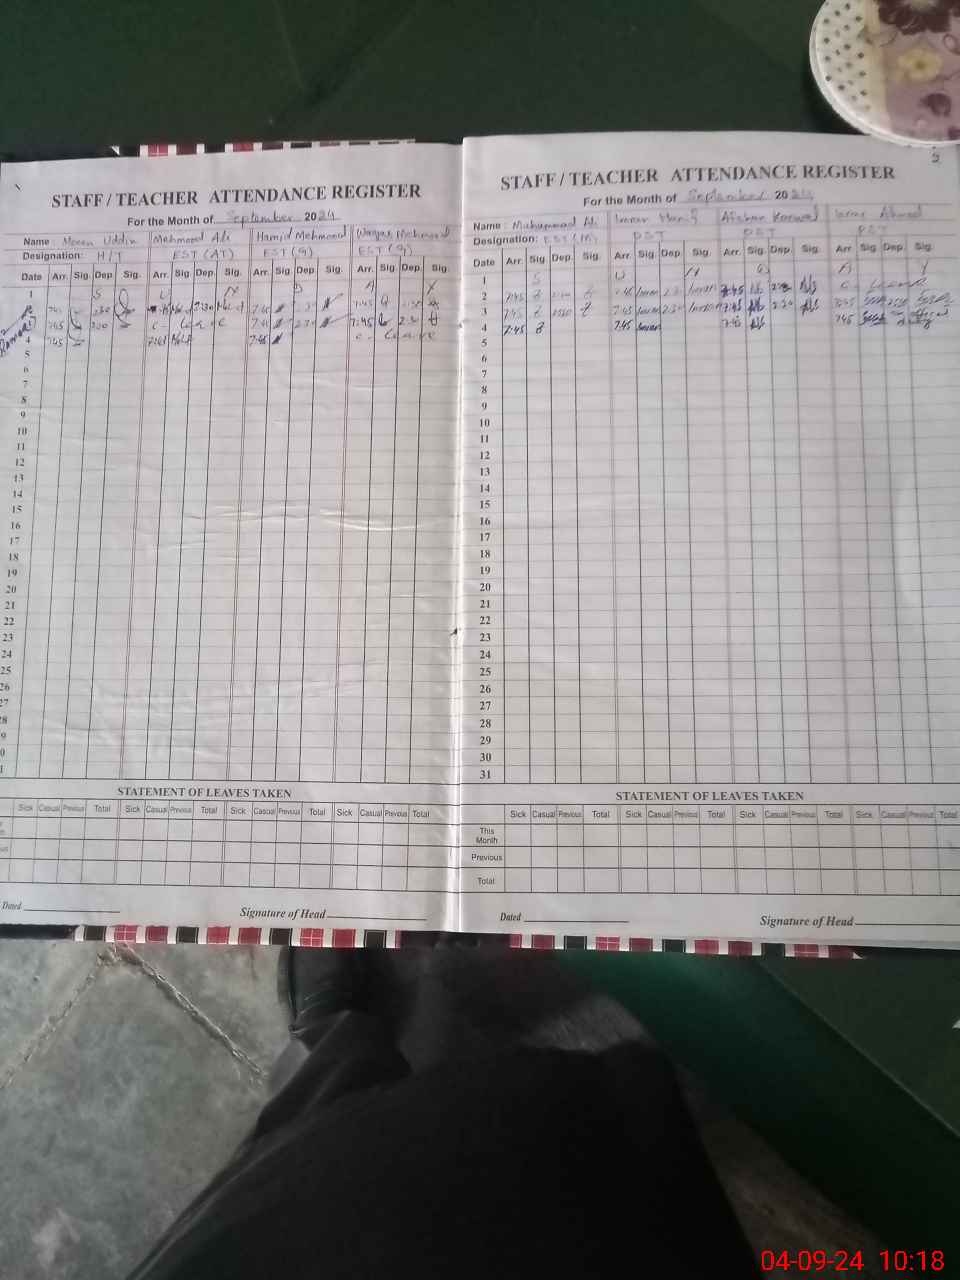 STAFF / TEACHER ATTENDANCE REGISTER
For the Month of September 2024
Name Moeen Uddin Mehmood Ali Hamid Mehmood Waqas Mehmood
Designation: H/T EST (AT) EST (G) EST (G)
Date Arr. Sig. Dep. Sig. Arr. Sig. Dep. Sig. Arr. Sig. Dep. Sig. Arr. Sig. Dep. Sig.
1 S U N D A Y
2 7:45
3 745 230 C - Leave 7:45 2:30 7:45 2:30
4 745 7:45 7:45 C - Leave
5
6
7
8
9
10
11
12
13
14
15
16
17
18
19
20
21
22
23
24
25
26
27
28
9
0
1
STATEMENT OF LEAVES TAKEN
Sick Casual Previous Total Sick Casual Previous Total Sick Casual Previous Total Sick Casual Previous Total
Dated
Signature of Head
STAFF / TEACHER ATTENDANCE REGISTER
For the Month of September 2024
Name : Muhammad Ali Imran Hanif Afshan Kanwal Israr Ahmad
Designation: EST (M) PST PST PST
Date Arr. Sig. Dep. Sig. Arr. Sig. Dep. Sig. Arr. Sig. Dep. Sig. Arr. Sig. Dep. Sig.
1 S U N D A Y
2 7:45 7:45 Imran Imran 7:45 C - Leave
3 7:45 7:45 Imran 2:30 Imran 7:45 2:30 7:45
4 7:45 7:45 Imran 7:45 7:45
5
6
7
8
9
10
11
12
13
14
15
16
17
18
19
20
21
22
23
24
25
26
27
28
29
30
31
STATEMENT OF LEAVES TAKEN
Sick Casual Previous Total Sick Casual Previous Total Sick Casual Previous Total Sick Casual Previous Total
This Month
Previous
Total
Dated
Signature of Head
04-09-24 10:18